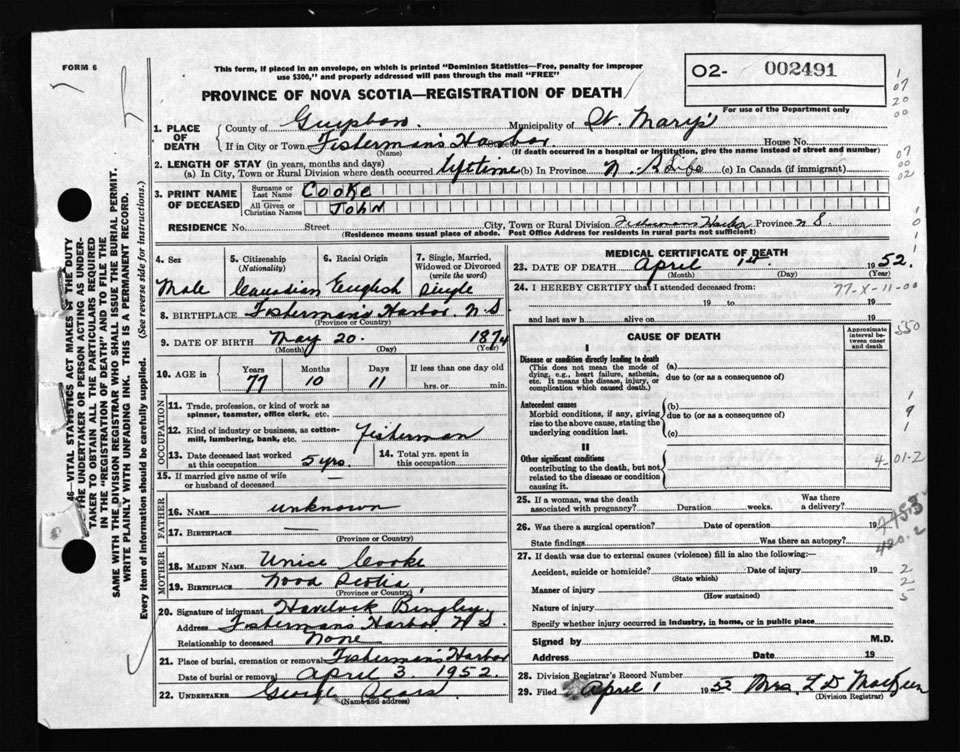 FORM 6
This form, if placed in an envelope, on which is printed "Dominion Statistics—Free, penalty for improper
use $300," and properly addressed will pass through the mail "FREE"
02- 002491
For use of the Department only
PROVINCE OF NOVA SCOTIA—REGISTRATION OF DEATH
07
20
00
1. PLACE OF DEATH
County of Municipality of St. Mary's
If in City or Town Fisherman's Harbor Street House No.
(Name) (If death occurred in a hospital or institution, give the name instead of street and number)
07
00
02
2. LENGTH OF STAY (in years, months and days)
(a) In City, Town or Rural Division where death occurred lifetime (b) In Province N. S Life (c) In Canada (if immigrant)
3. PRINT NAME OF DECEASED
Surname or Last Name COOKE
All Given or Christian Names JOHN
RESIDENCE No. Street City, Town or Rural Division Fishermans Harbor Province N S.
(Residence means usual place of abode. Post Office Address for residents in rural parts not sufficient)
4. Sex 5. Citizenship (Nationality) 6. Racial Origin 7. Single, Married, Widowed or Divorced (write the word)
Male Canadian English Single
8. BIRTHPLACE Fisherman's Harbor N.S
(Province or Country)
9. DATE OF BIRTH May 20. 1874
(Month) (Day) (Year)
10. AGE in Years Months Days If less than one day old
77 10 11 hrs. or min.
OCCUPATION
11. Trade, profession, or kind of work as
spinner, teamster, office clerk, etc.
12. Kind of industry or business, as cotton-
mill, lumbering, bank, etc. fisherman
13. Date deceased last worked
at this occupation 5 yrs.
14. Total yrs. spent in
this occupation
15. If married give name of wife
or husband of deceased —
FATHER
16. NAME unknown
17. BIRTHPLACE —
(Province or Country)
MOTHER
18. MAIDEN NAME Unice Cooke
19. BIRTHPLACE Nova Scotia
(Province or Country)
20. Signature of informant Havelock Bingley
Address Fisherman's Harbor N S.
Relationship to deceased None
21. Place of burial, cremation or removal Fisherman's Harbor
Date of burial or removal April 3. 1952.
22. UNDERTAKER George
(Name and Address)
MEDICAL CERTIFICATE OF DEATH
23. DATE OF DEATH April 1st. 1952.
(Month) (Day) (Year)
24. I HEREBY CERTIFY that I attended deceased from:
77-X-11-00
19 to 19
and last saw h alive on 19
CAUSE OF DEATH
Approximate interval between onset and death
350
I
Disease or condition directly leading to death
(This does not mean the mode of
dying, e.g., heart failure, asthenia,
etc. It means the disease, injury, or
complication which caused death.)
(a)
due to (or as a consequence of)
Antecedent causes
Morbid conditions, if any, giving
rise to the above cause, stating the
underlying condition last.
(b)
due to (or as a consequence of)
(c)
1
9
1
II
Other significant conditions
contributing to the death, but not
related to the disease or condition
causing it.
4-01-2
25. If a woman, was the death
associated with pregnancy? Duration weeks. Was there
a delivery?
26. Was there a surgical operation? Date of operation 19
State findings Was there an autopsy?
420.2
27. If death was due to external causes (violence) fill in also the following:—
Accident, suicide or homicide? Date of injury 19
(State which)
Manner of injury
(How sustained)
Nature of injury
2
2
5
Specify whether injury occurred in industry, in home, or in public place
Signed by M.D.
Address Date 19
28. Division Registrar's Record Number
29. Filed April 1 1952 Mrs. L D
(Division Registrar)
46—VITAL STATISTICS ACT MAKES IT THE DUTY
THE UNDERTAKER OR PERSON ACTING AS UNDER-
TAKER TO OBTAIN ALL THE PARTICULARS REQUIRED
IN THE "REGISTRATION OF DEATH" AND TO FILE THE
SAME WITH THE DIVISION REGISTRAR WHO SHALL ISSUE THE BURIAL PERMIT.
WRITE PLAINLY WITH UNFADING INK. THIS IS A PERMANENT RECORD.
Every item of information should be carefully supplied. (See reverse side for instructions.)